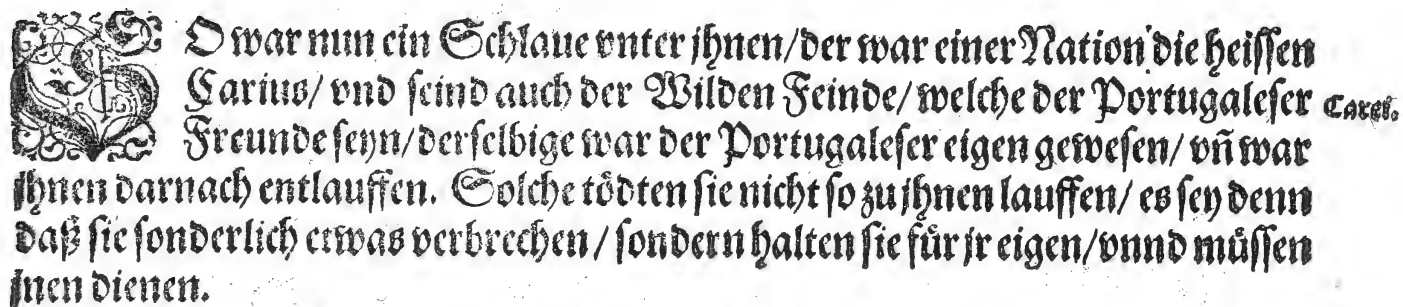 SO war nun ein Schlaue vnter jhnen/der war einer Nation die heissen
Carius/ vnd seind auch der Wilden Feinde/ welche der Portugaleser
Freunde seyn/ derselbige war der Portugaleser eigen gewesen/ vñ war
jhnen darnach entlauffen. Solche tödten sie nicht so zu jhnen lauffen/ es sey denn
daß sie sonderlich etwas verbrechen / sondern halten sie für jr eigen/vnnd müssen
jnen dienen.